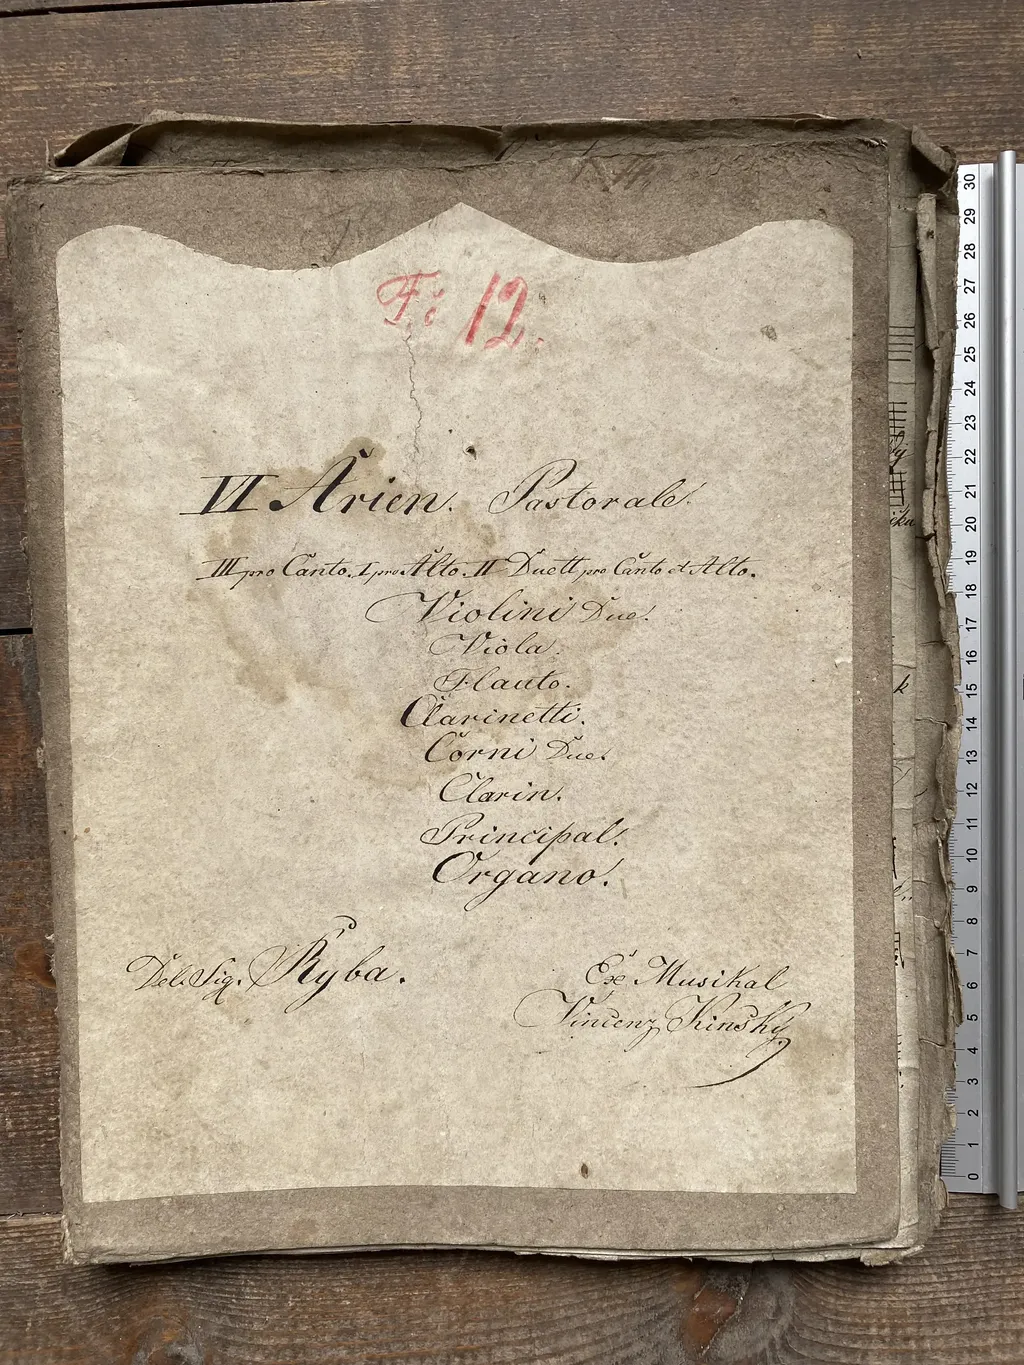 Fč 12.
VI Arien. Pastorale.
III pro Canto. I pro Alto. II Duett pro Canto et Alto.
Violini Due.
Viola.
Flauto.
Clarinetti.
Corni Due.
Clarin.
Principal.
Organo.
Del Sig. Ryba.
Ex Musikal
Vincenz Kinský
30
29
28
27
26
25
24
23
22
21
20
19
18
17
16
15
14
13
12
11
10
9
8
7
6
5
4
3
2
1
0